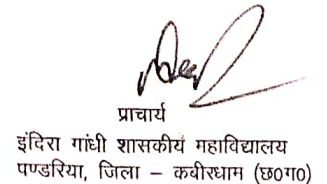 प्राचार्य
इंदिरा गांधी शासकीय महाविद्यालय
पण्डरिया, जिला – कबीरधाम (छ०ग०)